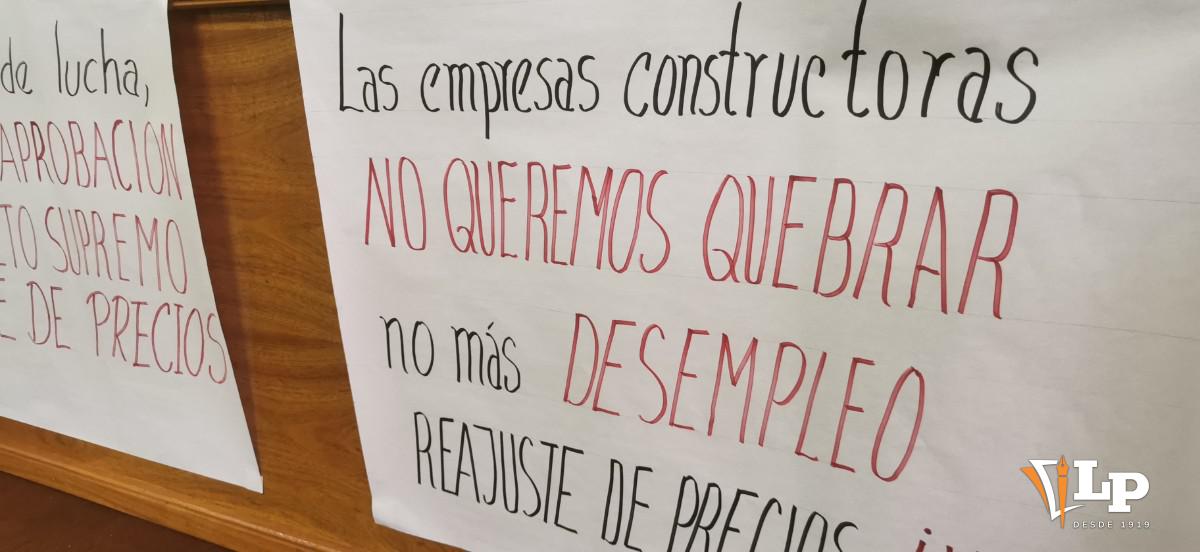 de lucha,
APROBACION
TO SUPREMO
E DE PRECIOS
Las empresas constructoras
NO QUEREMOS QUEBRAR
no más DESEMPLEO
REAJUSTE DE PRECIOS
LP
DESDE 1919